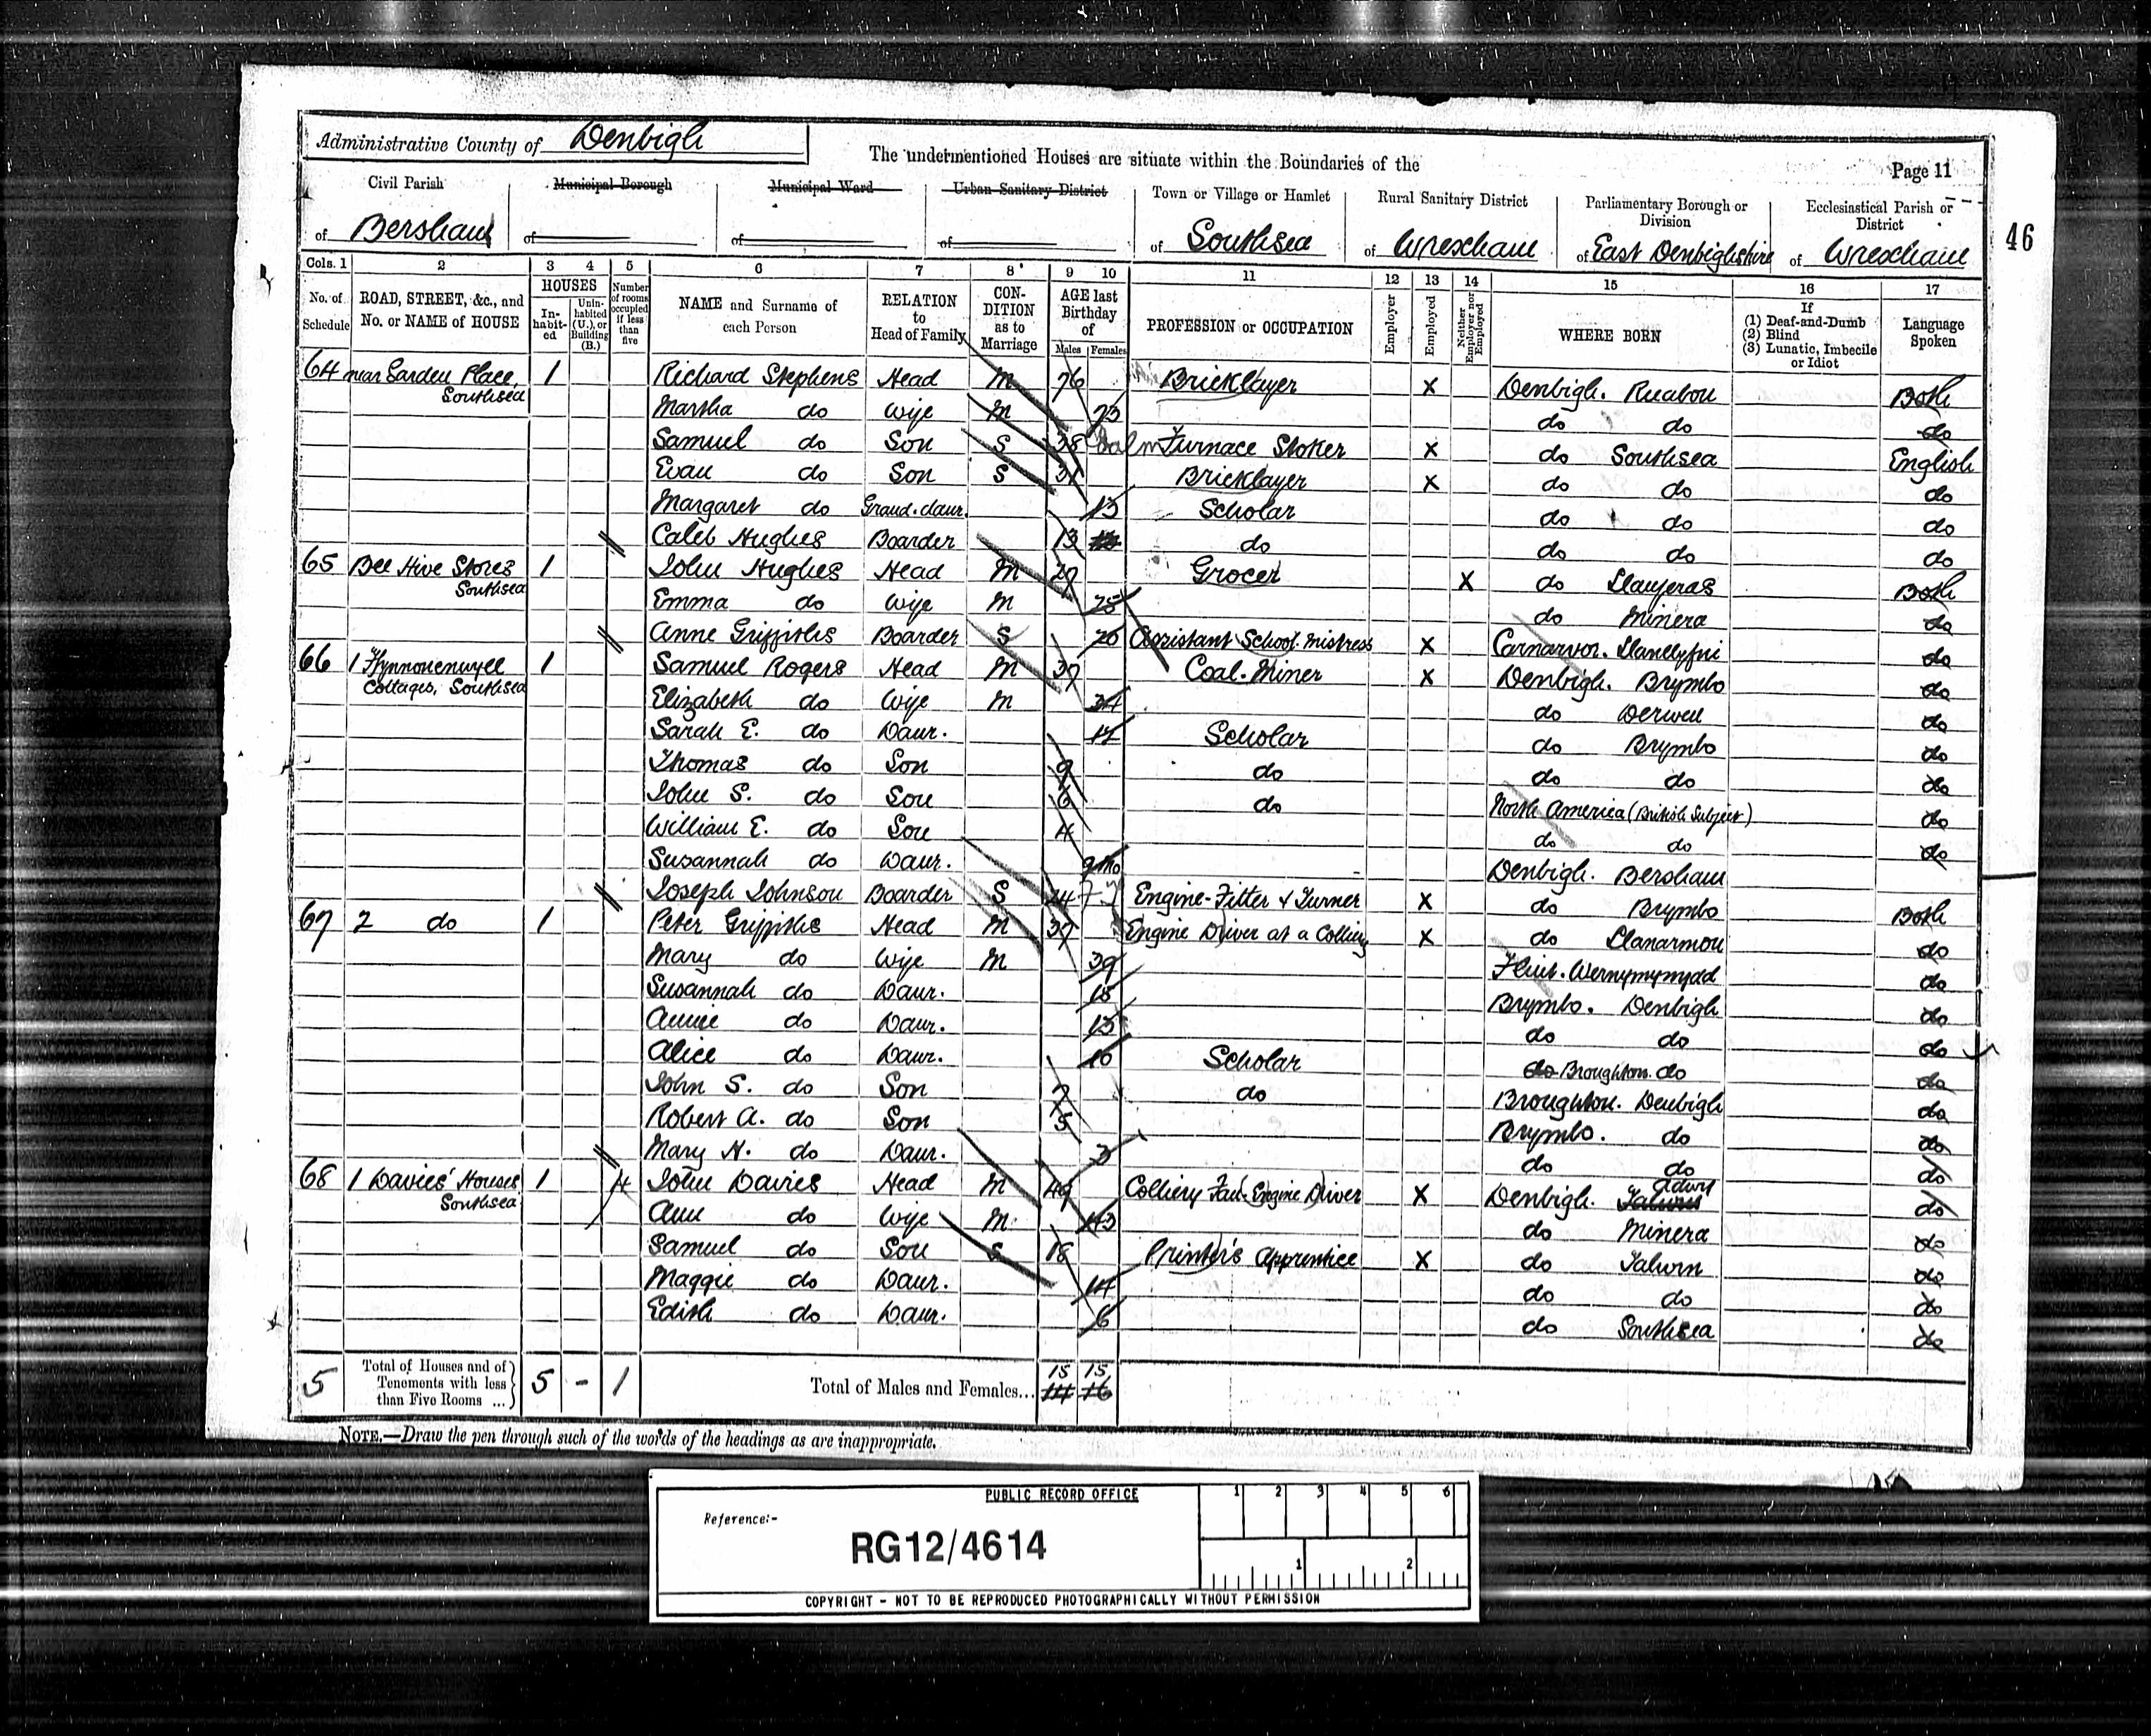 Administrative County of Denbigh
The undermentioned Houses are situate within the Boundaries of the
Page 11
Civil Parish of Bersham
Municipal Borough of
Municipal Ward of
Urban Sanitary District of
Town or Village or Hamlet of Southsea
Rural Sanitary District of Wrexham
Parliamentary Borough or Division of East Denbighshire
Ecclesiastical Parish or District of Wrexham
46
Cols. 1 2 3 4 5 6 7 8 9 10 11 12 13 14 15 16 17
No. of Schedule
ROAD, STREET, &c., and No. or NAME of HOUSE
HOUSES
In-habit-ed
Unin-habited (U.), or Building (B.)
Number of rooms occupied if less than five
NAME and Surname of each Person
RELATION to Head of Family
CON-DITION as to Marriage
AGE last Birthday of
Males Females
PROFESSION or OCCUPATION
Employer
Employed
Neither Employer nor Employed
WHERE BORN
If (1) Deaf-and-Dumb (2) Blind (3) Lunatic, Imbecile or Idiot
Language Spoken
64 near Garden Place, Southsea 1 Richard Stephens Head M 76 Bricklayer X Denbigh. Ruabon Both
Martha do Wife M 73 do do do
Samuel do Son S 38 Furnace Stoker X do Southsea English
Evan do Son S 31 Bricklayer X do do do
Margaret do Grand.daur. 13 Scholar do do do
Caleb Hughes Boarder 13 do do do do
65 Bee Hive Stores Southsea 1 John Hughes Head M 29 Grocer X do Llanferas Both
Emma do Wife M 25 do Minera do
Anne Griffiths Boarder S 20 Assistant School Mistress X Carnarvon. Llanllyfni do
66 1 Ffynnonenwyll Cottages, Southsea 1 Samuel Rogers Head M 39 Coal-Miner X Denbigh. Brymbo do
Elizabeth do Wife M 34 do Derwen do
Sarah E. do Daur. 11 Scholar do Brymbo do
Thomas do Son 9 do do do do
John S. do Son 6 do North America (British Subject) do
William E. do Son 4 do do do
Susannah do Daur. 9mo Denbigh. Bersham
Joseph Johnson Boarder S 24 Engine-Fitter & Turner X do Brymbo Both
67 2 do 1 Peter Griffiths Head M 37 Engine Driver at a Colliery X do Llanarmon do
Mary do Wife M 39 Flint. Wernymynydd do
Susannah do Daur. 15 Brymbo. Denbigh do
Annie do Daur. 13 do do do
Alice do Daur. 10 Scholar do Broughton. do do
John S. do Son 7 do Broughton. Denbigh do
Robert A. do Son 5 Brymbo. do do
Mary H. do Daur. 3 do do do
68 1 Davies' Houses Southsea 1 4 John Davies Head M 49 Colliery Fan-Engine Driver X Denbigh. Adwy do
Ann do Wife M 43 do Minera do
Samuel do Son S 18 Printer's Apprentice X do Talwrn do
Maggie do Daur. 14 do do do
Edith do Daur. 6 do Southsea do
5 Total of Houses and of Tenements with less than Five Rooms ... 5 - 1 Total of Males and Females... 15 15
14 16
NOTE.—Draw the pen through such of the words of the headings as are inappropriate.
PUBLIC RECORD OFFICE
1 2 3 4 5 6
Reference:-
RG12/4614
1 2
COPYRIGHT - NOT TO BE REPRODUCED PHOTOGRAPHICALLY WITHOUT PERMISSION